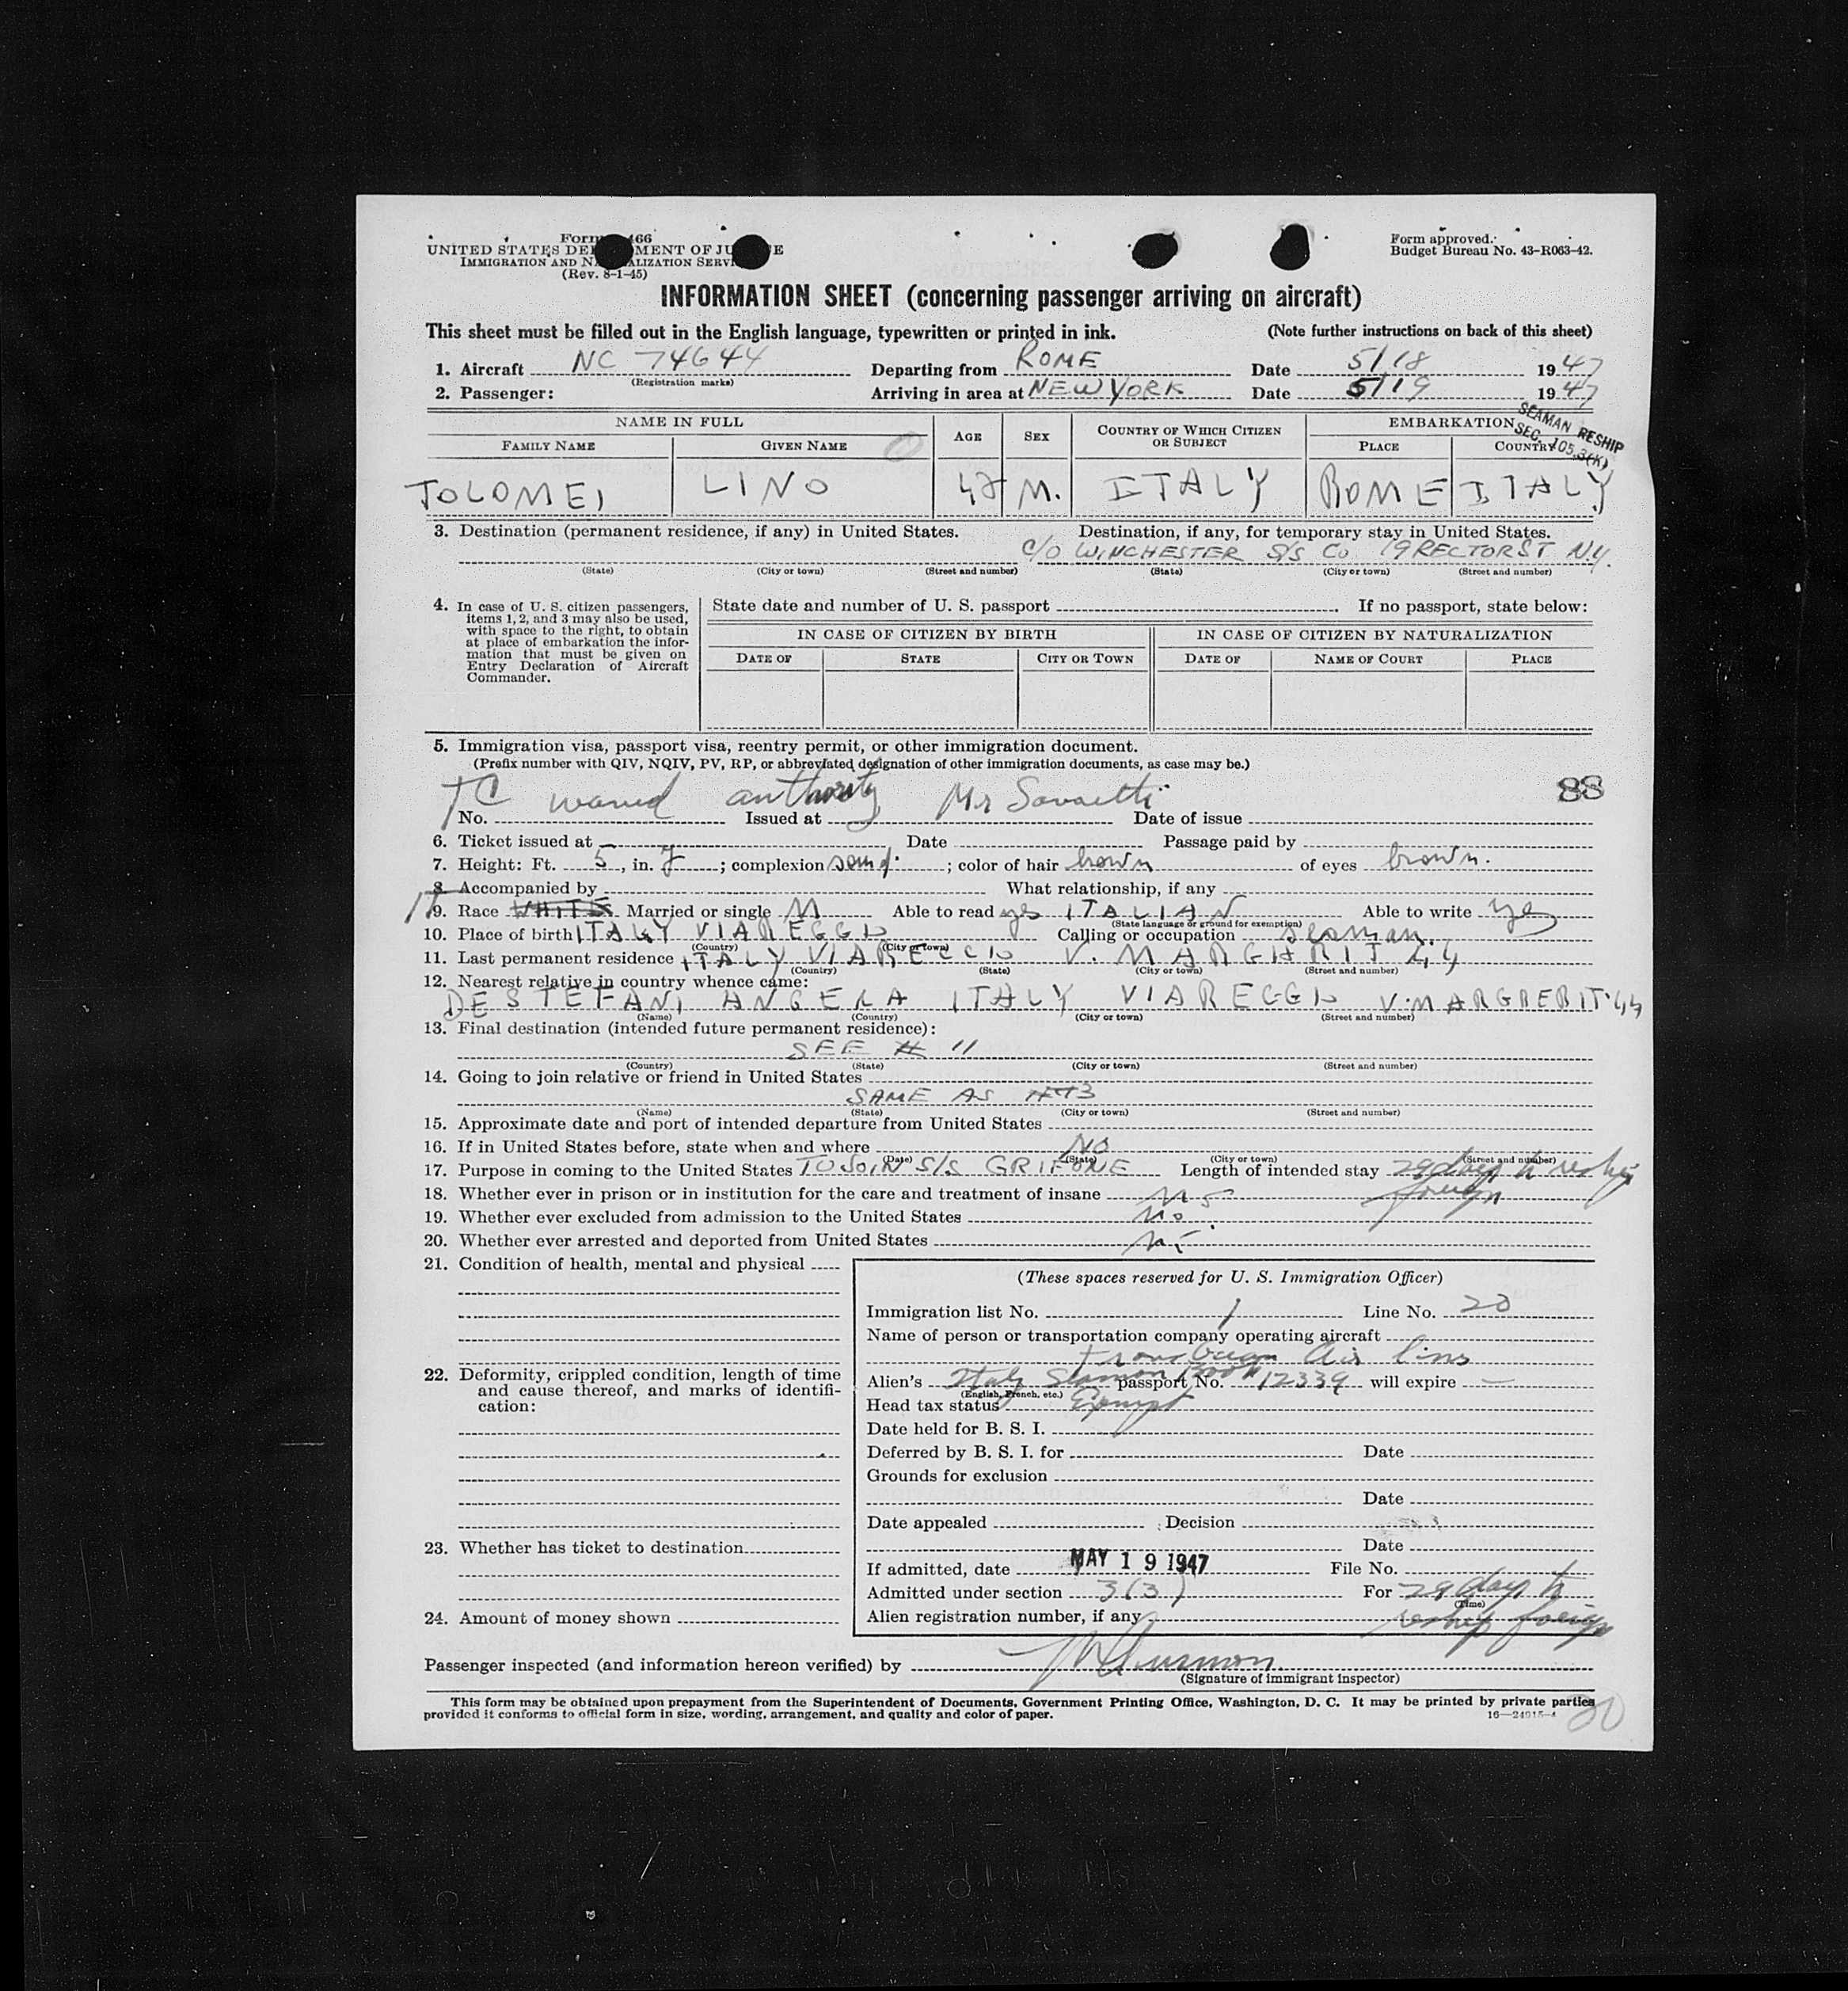 Form 466
UNITED STATES DEPARTMENT OF JUSTICE
IMMIGRATION AND NATURALIZATION SERVICE
(Rev. 8-1-45)
Form approved.
Budget Bureau No. 43-R063-42.
INFORMATION SHEET (concerning passenger arriving on aircraft)
This sheet must be filled out in the English language, typewritten or printed in ink. (Note further instructions on back of this sheet)
1. Aircraft NC 74644 Departing from ROME Date 5/18 1947
(Registration marks)
2. Passenger: Arriving in area at NEW YORK Date 5/19 1947
SEAMAN RESHIP
SEC. 105.3(K)
NAME IN FULL AGE SEX COUNTRY OF WHICH CITIZEN OR SUBJECT EMBARKATION
FAMILY NAME GIVEN NAME PLACE COUNTRY
TOLOMEI LINO 42 M. ITALY ROME ITALY
3. Destination (permanent residence, if any) in United States. Destination, if any, for temporary stay in United States.
C/O WINCHESTER S/S Co 19 RECTOR ST N.Y.
(State) (City or town) (Street and number) (State) (City or town) (Street and number)
4. In case of U. S. citizen passengers, items 1, 2, and 3 may also be used, with space to the right, to obtain at place of embarkation the information that must be given on Entry Declaration of Aircraft Commander.
State date and number of U. S. passport If no passport, state below:
IN CASE OF CITIZEN BY BIRTH IN CASE OF CITIZEN BY NATURALIZATION
DATE OF STATE CITY OR TOWN DATE OF NAME OF COURT PLACE
5. Immigration visa, passport visa, reentry permit, or other immigration document.
(Prefix number with QIV, NQIV, PV, RP, or abbreviated designation of other immigration documents, as case may be.)
TC waived authority Mr 88
No. Issued at Date of issue
6. Ticket issued at Date Passage paid by
7. Height: Ft. 5, in. 7; complexion ; color of hair brown of eyes brown.
8. Accompanied by What relationship, if any
9. Race WHITE Married or single M Able to read yes ITALIAN Able to write yes
(State language or ground for exemption)
10. Place of birth ITALY VIAREGGIO Calling or occupation seaman.
(Country) (City or town)
11. Last permanent residence ITALY VIAREGGIO V. MARGHRIT 44
(Country) (State) (City or town) (Street and number)
12. Nearest relative in country whence came:
DE STEFANI ANGELA ITALY VIAREGGIO V. MARGRERIT. 44
(Name) (Country) (City or town) (Street and number)
13. Final destination (intended future permanent residence):
SEE # 11
(Country) (State) (City or town) (Street and number)
14. Going to join relative or friend in United States
SAME AS #3
(Name) (State) (City or town) (Street and number)
15. Approximate date and port of intended departure from United States
16. If in United States before, state when and where NO
(Date) (State) (City or town) (Street and number)
17. Purpose in coming to the United States TO JOIN S/S GRIFONE Length of intended stay 29 days to reship
foreign
18. Whether ever in prison or in institution for the care and treatment of insane no
19. Whether ever excluded from admission to the United States No.
20. Whether ever arrested and deported from United States no
21. Condition of health, mental and physical
22. Deformity, crippled condition, length of time and cause thereof, and marks of identification:
23. Whether has ticket to destination
24. Amount of money shown
(These spaces reserved for U. S. Immigration Officer)
Immigration list No. 1 Line No. 20
Name of person or transportation company operating aircraft
Trans Ocean Air Lines
Alien's Italy Seaman Book passport No. 12339 will expire —
(English, French, etc.)
Head tax status Exempt
Date held for B. S. I.
Deferred by B. S. I. for Date
Grounds for exclusion
Date
Date appealed Decision
Date
If admitted, date MAY 19 1947 File No.
Admitted under section 3(3) For 29 days to
(Time)
Alien registration number, if any reship foreign
Passenger inspected (and information hereon verified) by
(Signature of immigrant inspector)
This form may be obtained upon prepayment from the Superintendent of Documents, Government Printing Office, Washington, D. C. It may be printed by private parties
provided it conforms to official form in size, wording, arrangement, and quality and color of paper. 16—24915-4
20